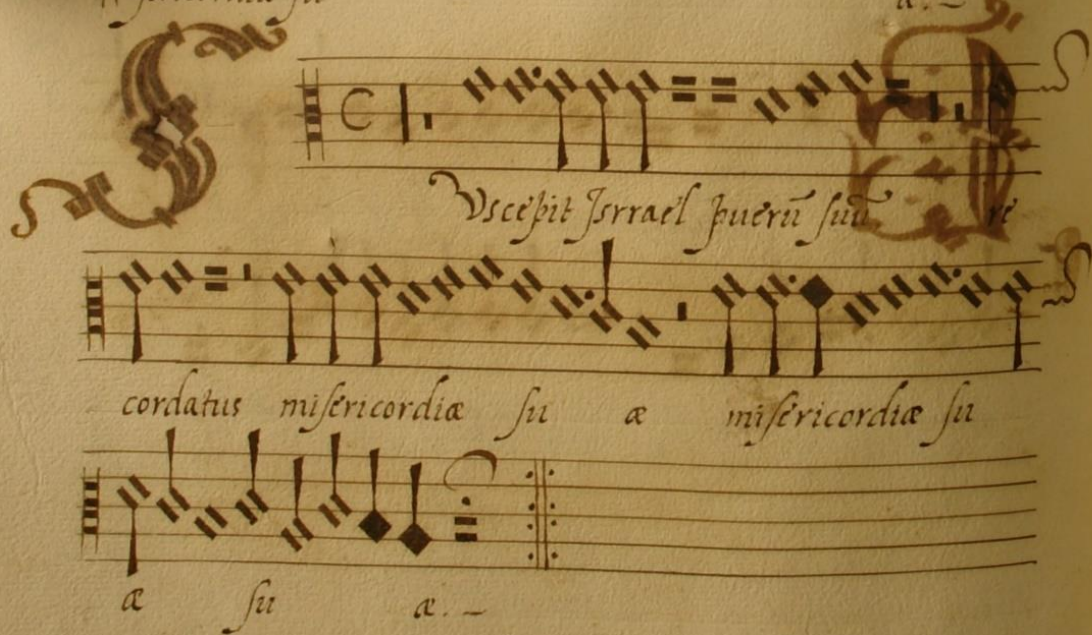 SVscepit Jsrrael puerū suū re
cordatus misericordiæ su æ misericordiæ su
æ su æ.